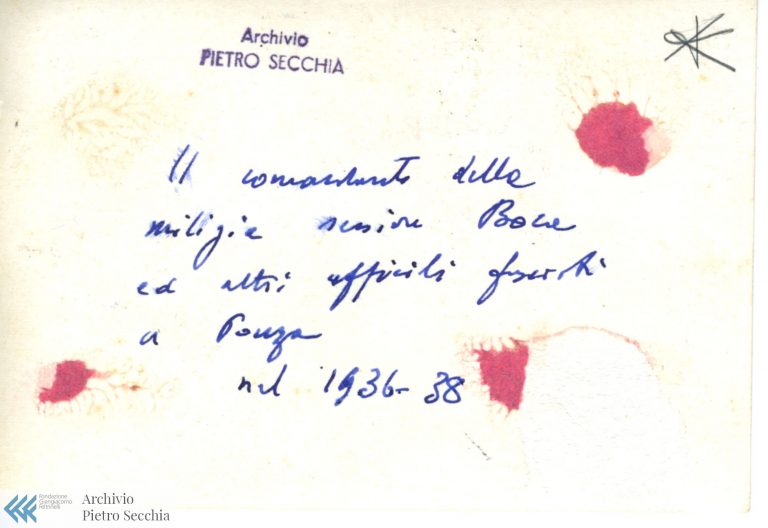 Archivio
PIETRO SECCHIA
Il comandante della
milizia
ed altri ufficiali fascisti
a Ponza
nel 1936-38
fondazione
Giangiacomo
Feltrinelli
Archivio
Pietro Secchia